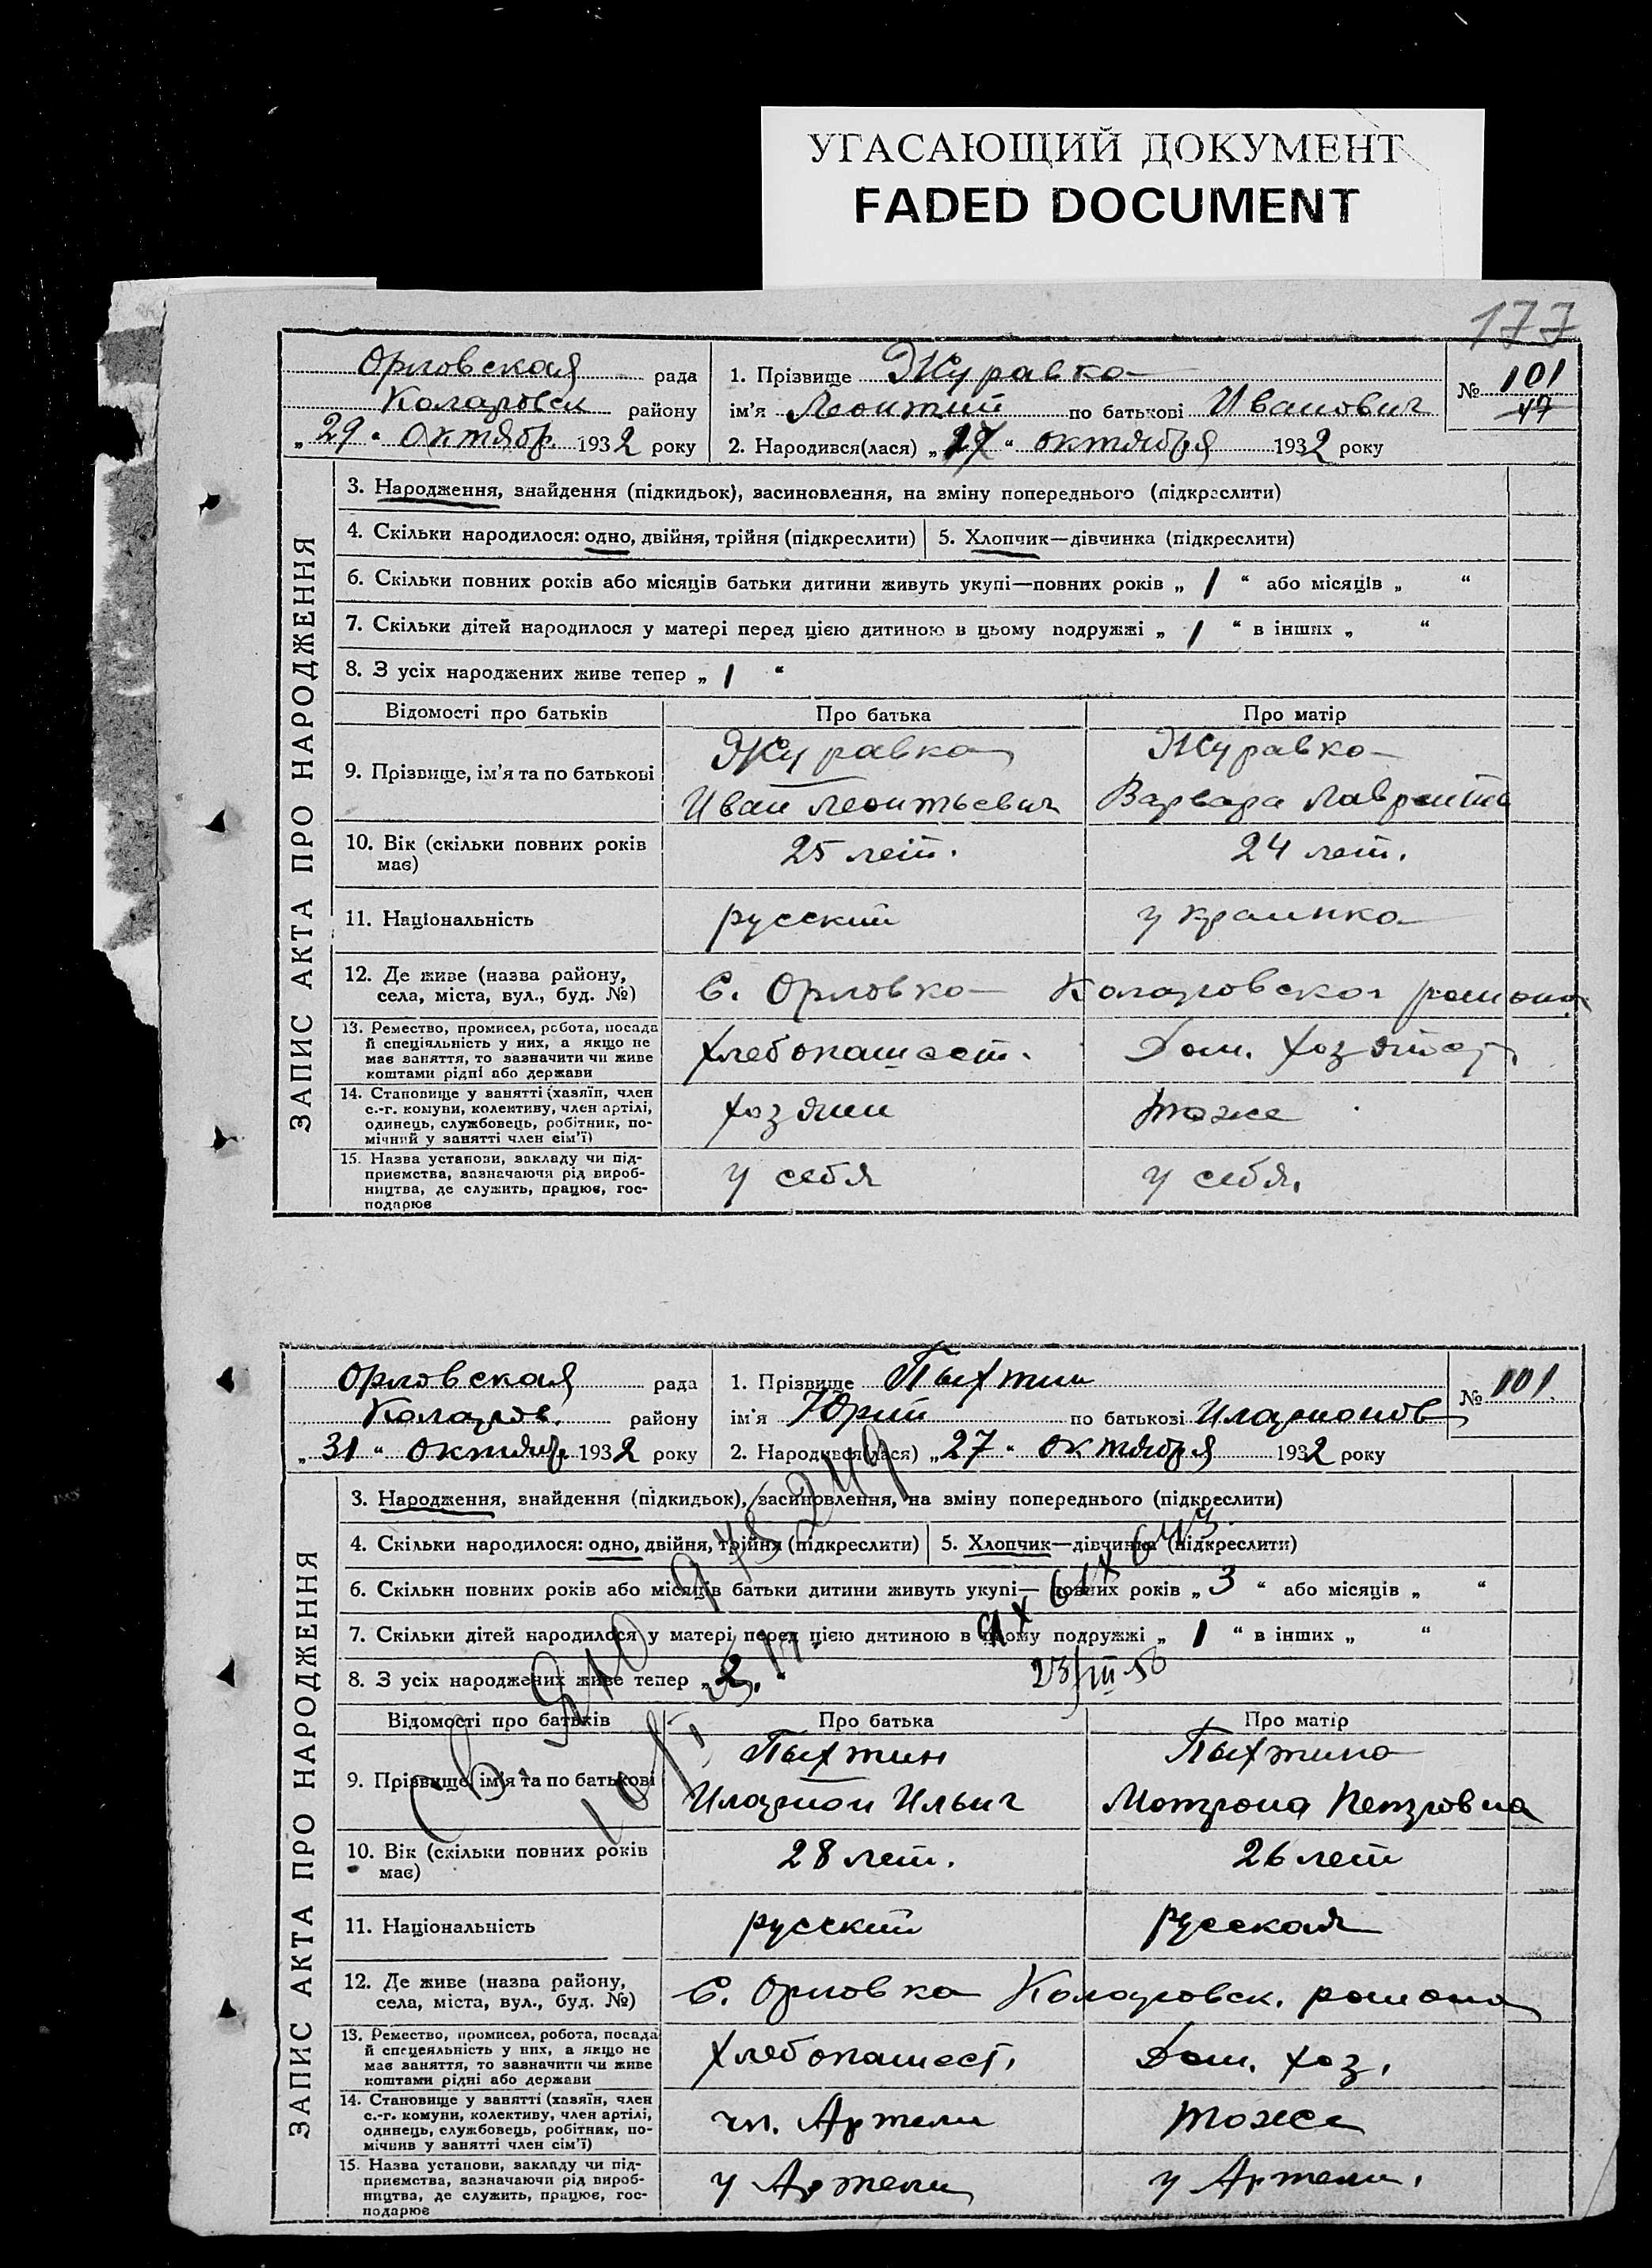 УГАСАЮЩИЙ ДОКУМЕНТ
FADED DOCUMENT
177
Орловская рада
Коларовск району
„29“ Октябр. 1932 року
1. Прізвище Журавка
ім'я Леонтий по батькові Иванович
2. Народився(лася) „ “ октября 1932 року
№ 101
47
ЗАПИС АКТА ПРО НАРОДЖЕННЯ
3. Народження, знайдення (підкидьок), васиновлення, на зміну попереднього (підкреслити)
4. Скільки народилося: одно, двійня, трійня (підкреслити)
5. Хлопчик—дівчинка (підкреслити)
6. Скільки повних років або місяців батьки дитини живуть укупі—повних років „ 1 “ або місяців „ “
7. Скільки дітей народилося у матері перед цією дитиною в цьому подружжі „ 1 “ в інших „ “
8. З усіх народжених живе тепер „ 1 “
Відомості про батьків Про батька Про матір
9. Прізвище, ім'я та по батькові
Журавка
Иван Леонтьевич
Журавка
Варвара
10. Вік (скільки повних років
має)
25 лет.
24 лет.
11. Національність русский украинка
12. Де живе (назва району,
села, міста, вул., буд. №)
С. Орловка Коларовског района
13. Ремество, промисел, робота, посада
й спеціяльність у них, а якщо не
має заняття, то зазначити чи живе
коштами рідні або держави
Хлебопашест.
Дом. хозяйст.
14. Становище у занятті (хазяїн, член
с.-г. комуни, колективу, член артілі,
одинець, службовець, робітник, по-
мічний у занятті член сім'ї)
хозяин
тоже
15. Назва установи, закладу чи під-
приємства, вазначаючи рід вироб-
ництва, де служить, працює, гос-
подарює
у себя
у себя.
Орловская рада
Коларов. району
„31“ октябр. 1932 року
1. Прізвище Пыхтин
ім'я Юрий по батькові Иларионов
2. Народився(лася) „27“ октября 1932 року
№ 101.
ЗАПИС АКТА ПРО НАРОДЖЕННЯ
3. Народження, знайдення (підкидьок), васиновлення, на зміну попереднього (підкреслити)
4. Скільки народилося: одно, двійня, трійня (підкреслити)
5. Хлопчик—дівчинка (підкреслити)
6. Скільки повних років або місяців батьки дитини живуть укупі— повних років „ 3 “ або місяців „ “
7. Скільки дітей народилося у матері перед цією дитиною в цьому подружжі „ 1 “ в інших „ “
8. З усіх народжених живе тепер „ 2. “
23/III 50
Відомості про батьків Про батька Про матір
9. Прізвище, ім'я та по батькові
Пыхтин
Иларион Ильич
Пыхтина
Мотрона Петровна
10. Вік (скільки повних років
має)
28 лет.
26 лет
11. Національність русский русская
12. Де живе (назва району,
села, міста, вул., буд. №)
С. Орловка Коларовск. района
13. Ремество, промисел, робота, посада
й спецеяльність у них, а якщо не
має заняття, то зазначити чи живе
коштами рідні або держави
Хлебопашест.
Дом. хоз.
14. Становище у занятті (хазяїн, член
с.-г. комуни, колективу, член артілі,
одинець, службовець, робітник, по-
мічнив у занятті член сім'ї)
чл. Артели
тоже
15. Назва установи, закладу чи під-
приємства, вазначаючи рід вироб-
ництва, де служить, працює, гос-
подарює
у Артели
у Артели.